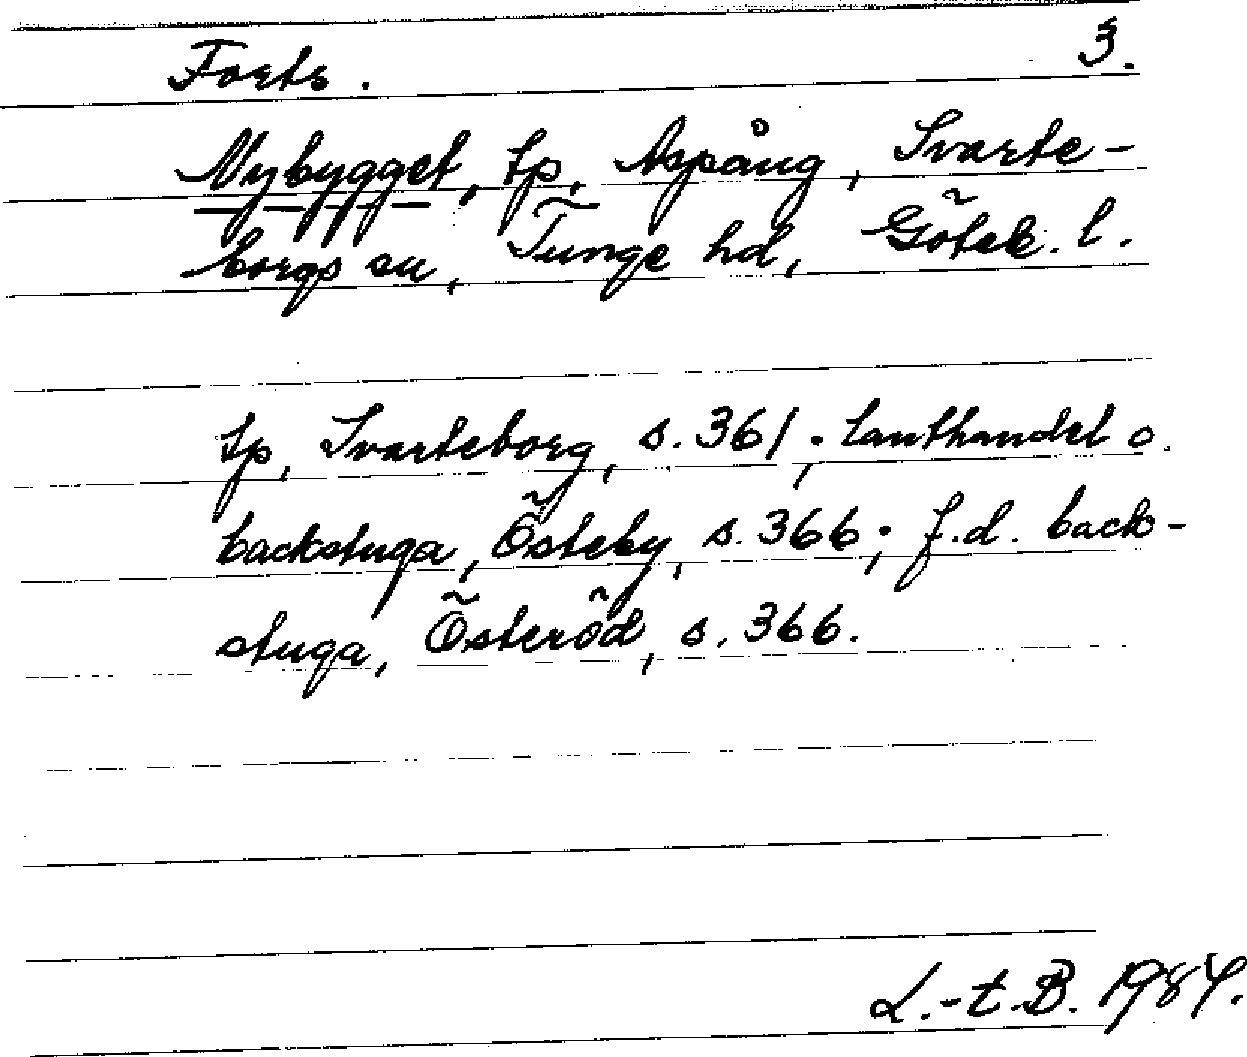 Forts. 3.
Nybygget, tp, Aspång, Svarte-
borgs sn, Tunge hd, Göteb. l.
tp, Svarteborg, s. 361; lanthandel o.
backstuga, Östeby, s. 366; f.d. back-
stuga, Österöd, s. 366.
L.-t.B. 1984.